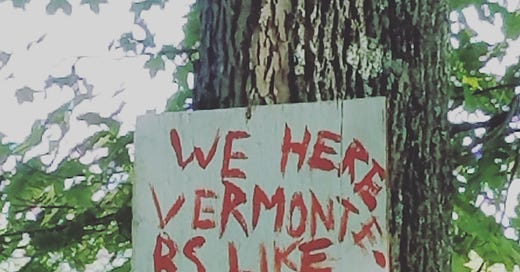 WE HERE
VERMONTE
RS LIKE